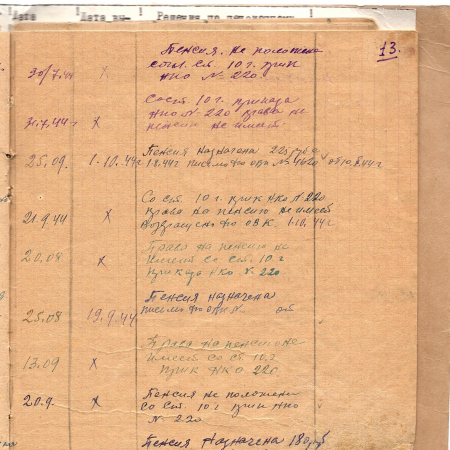 Дата
Дата вы-
Решения по пенсионным
13.
30/7.44 х Пенсия не положена
ст. 10 г. прик
НКО № 220
31.7.44 х Со ст 10 г. приказа
НКО № 220 права на
пенсию не имеет
25.09. 1.10.44г Пенсия назначена 225 руб с
1.8.44г письмо № 4620 от 10.8.44г
21.9.44 х Со ст. 10 г. прик НКО № 220
права на пенсию не имеет
Возвращено ОВК 1.10.44г
20.08 х Права на пенсию не
имеет со ст. 10.г
приказа НКО № 220
25.08 19.9.44. Пенсия назначена
письмо № от
13.09 х Права на пенсию не
имеет со ст 10.г
прик НКО 220
20.9. х Пенсия не положена
Со ст. 10 г прик НКО
№ 220
Пенсия назначена 180 руб